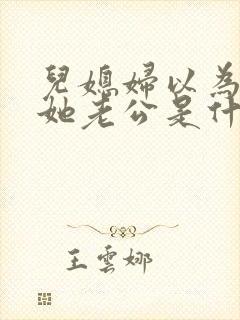 兒媳婦以為
她老公是什
王雲娜